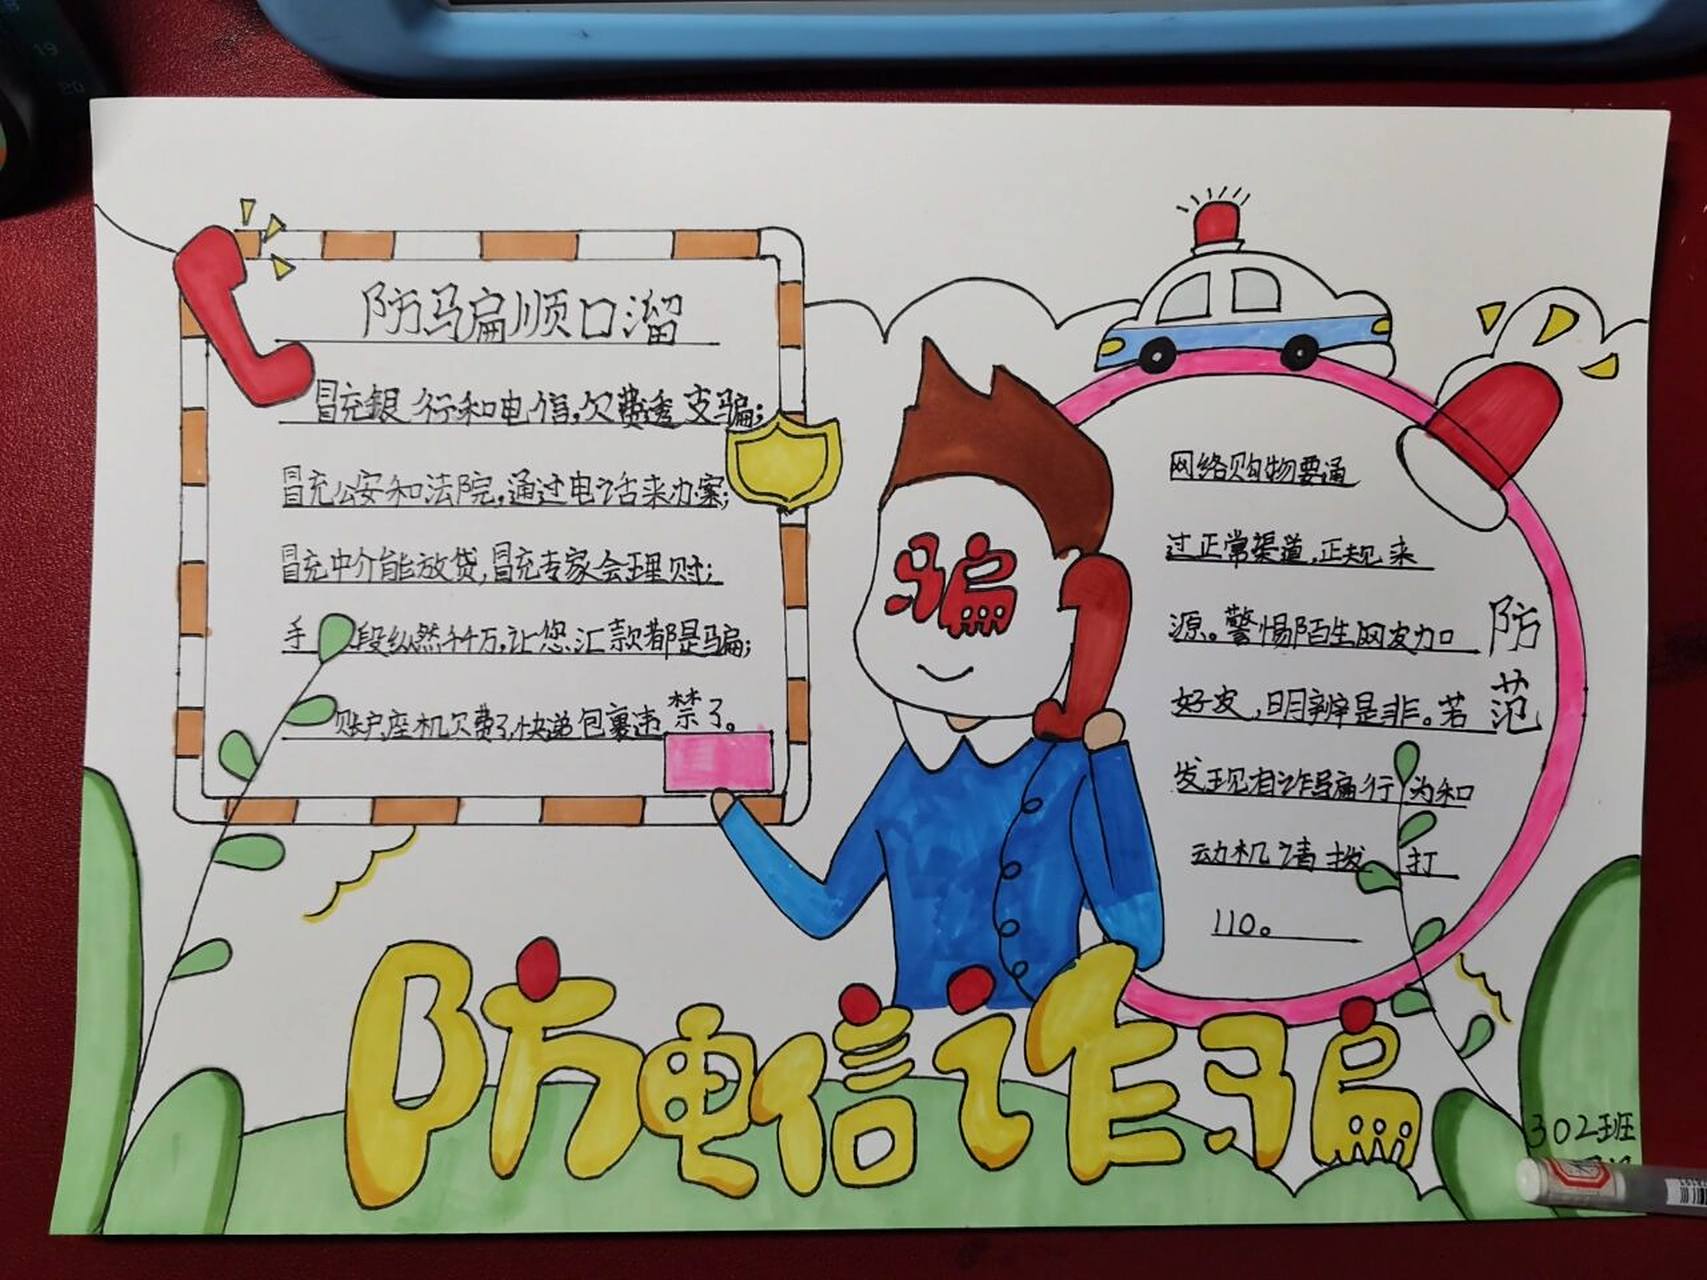 防骗顺口溜
冒充银行和电信,欠费透支骗;
冒充公安和法院,通过电话来办案;
冒充中介能放贷,冒充专家会理财;
手段纵然千千万,让您汇款都是骗;
账户座机欠费了,快递包裹违禁了。
骗
网络购物要通
过正常渠道,正规来
源。警惕陌生网友加
好友,明辨是非。若
发现有诈骗行为和
动机请拨打
110。
防范
防电信诈骗
302班
19
20